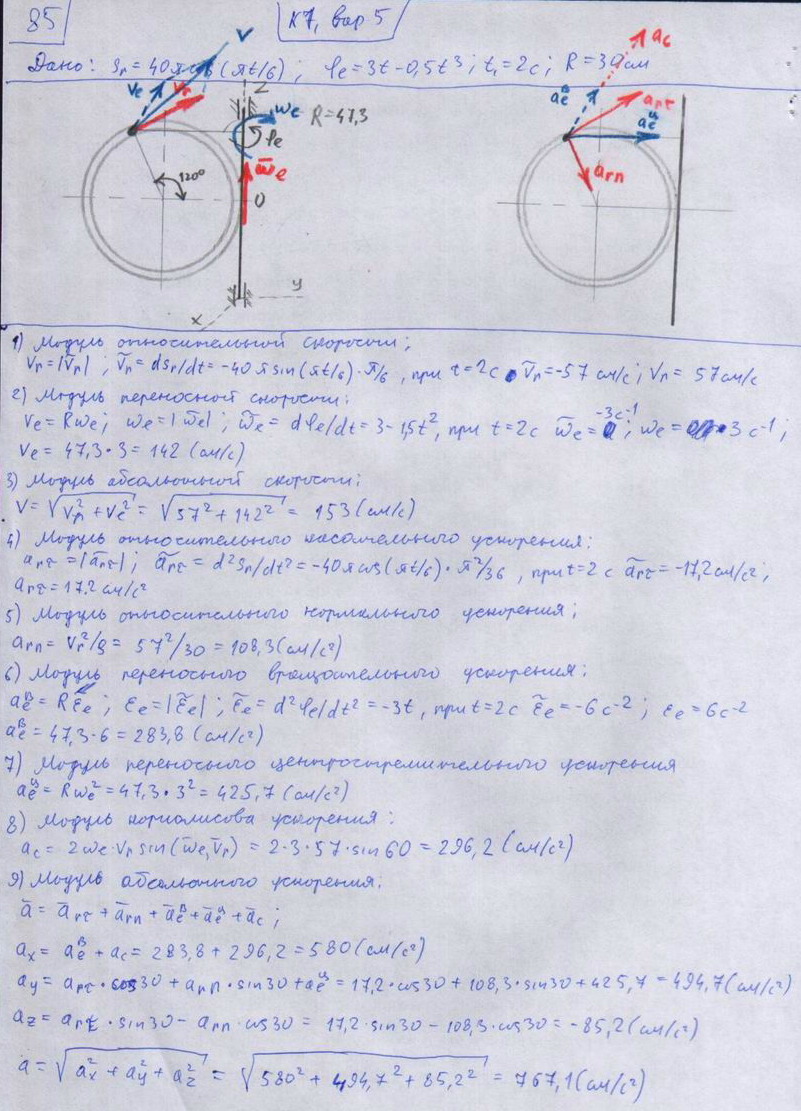 85
К7, вар 5
Дано: Sr = 40π cos(πt/6); φe = 3t - 0,5t³; t₁ = 2c; R = 30см
V
Ve
Vr
Z
ωe
R = 47,3
φe
ω̄e
120°
O
y
x
ac
aeᴮ
arτ
aeᶣ
arn
1) Модуль относительной скорости;
Vr = |Ṽr|; Ṽr = dSr/dt = -40π sin(πt/6)·π/6, при t = 2c Ṽr = -57 см/с; Vr = 57 см/с
2) Модуль переносной скорости:
Ve = Rωe; ωe = |ω̃e|; ω̃e = dφe/dt = 3 - 1,5t², при t = 2c ω̃e = -3c⁻¹; ωe = 3 c⁻¹;
Ve = 47,3·3 = 142 (см/с)
3) Модуль абсолютной скорости:
V = √(Vr² + Ve²) = √(57² + 142²) = 153 (см/с)
4) Модуль относительного касательного ускорения:
arτ = |ãrτ|; ãrτ = d²Sr/dt² = -40π cos(πt/6)·π²/36, при t = 2 c ãrτ = -17,2 см/с²;
arτ = 17.2 см/с²
5) Модуль относительного нормального ускорения;
arn = Vr²/ρ = 57²/30 = 108,3 (см/с²)
6) Модуль переносного вращательного ускорения:
aeᴮ = Rεe; εe = |ε̃e|; ε̃e = d²φe/dt² = -3t, при t = 2c ε̃e = -6 c⁻²; εe = 6c⁻²
aeᴮ = 47,3·6 = 283,8 (см/с²)
7) Модуль переносного центростремительного ускорения
aeᶣ = Rωe² = 47,3·3² = 425,7 (см/с²)
8) Модуль кориолисова ускорения:
ac = 2ωe·Vr sin(ω̄e, V̄r) = 2·3·57·sin60 = 296,2 (см/с²)
9) Модуль абсолютного ускорения:
ā = ārτ + ārn + āeᴮ + āeᶣ + āc;
ax = aeᴮ + ac = 283,8 + 296,2 = 580 (см/с²)
ay = arτ·cos30 + arn·sin30 + aeᶣ = 17,2·cos30 + 108,3·sin30 + 425,7 = 494,7 (см/с²)
az = arτ·sin30 - arn·cos30 = 17,2·sin30 - 108,3·cos30 = -85,2 (см/с²)
a = √(ax² + ay² + az²) = √(580² + 494,7² + 85,2²) = 767,1 (см/с²)